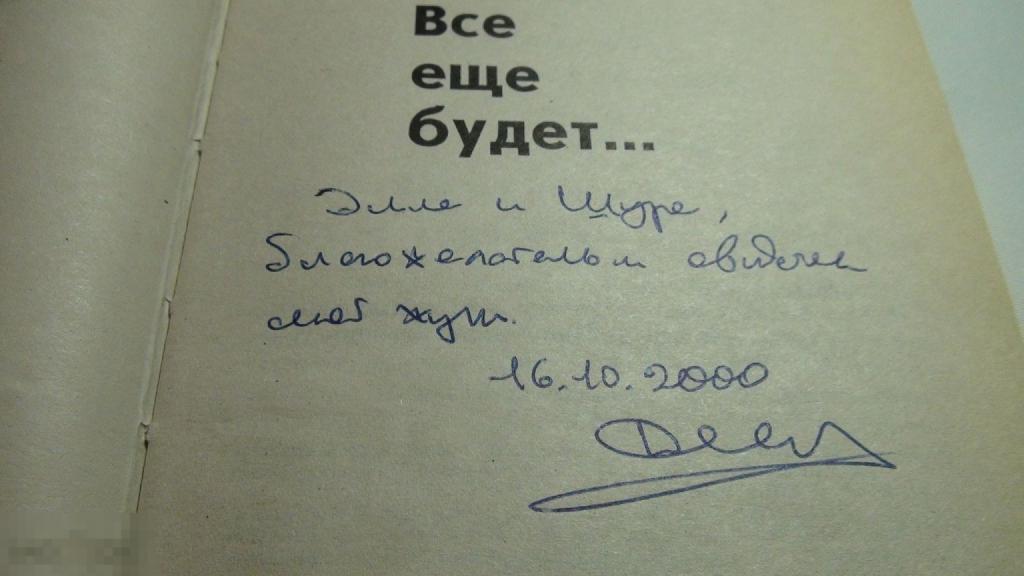 Все
еще
будет...
Элле и Шуре,
благожелательным свидетелям
моей жизни.
16.10.2000